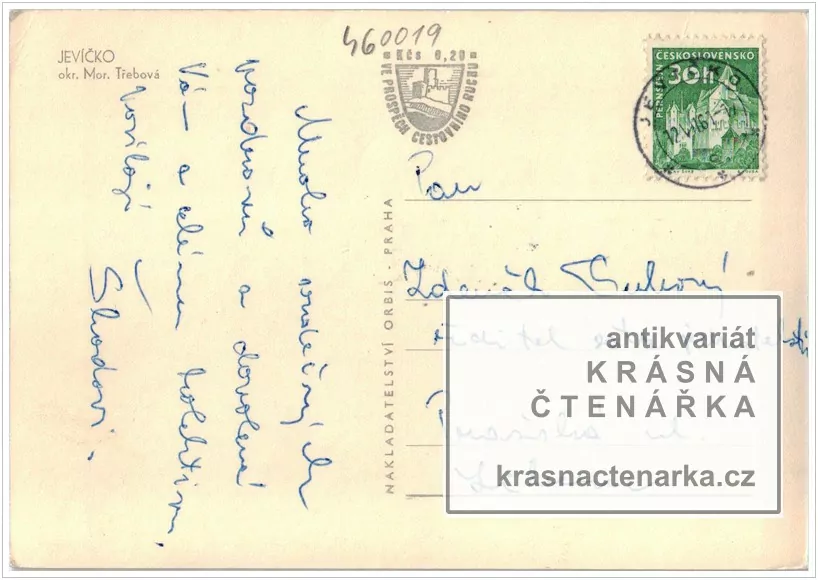 460019
JEVÍČKO
okr. Mor. Třebová
Kčs 0,20
VE PROSPĚCH CESTOVNÍHO RUCHU
ČESKOSLOVENSKO
30 h
PERNŠTEJN
Mnoho srdečných
pozdravů z dovolené
Vám a celému kolektivu
posílají
Škodovi.
NAKLADATELSTVÍ ORBIS - PRAHA
Pan
Zdeněk
ředitel
ul.
antikvariát
KRÁSNÁ
ČTENÁŘKA
krasnactenarka.cz